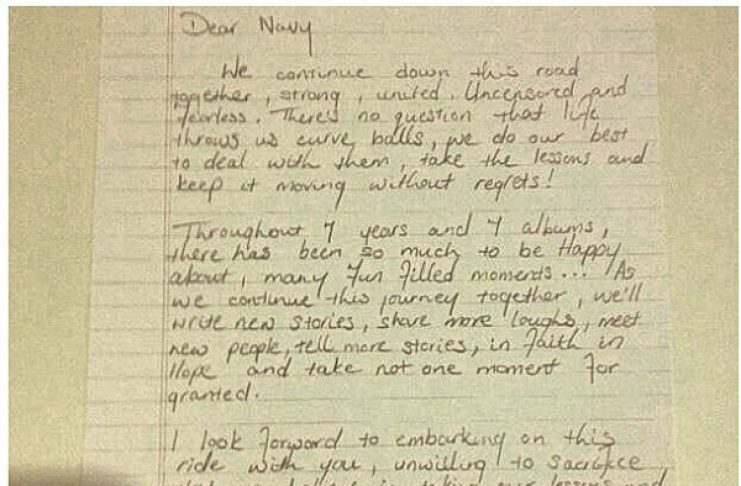 Dear Navy
We continue down this road
together, strong, united. Uncensored and
fearless. There's no question that life
throws us curve balls, we do our best
to deal with them, take the lessons and
keep it moving without regrets!
Throughout 7 years and 7 albums,
there has been so much to be Happy
about, many Fun Filled moments... As
we continue this journey together, we'll
write new stories, share more laughs, meet
new people, tell more stories, in Faith in
Hope and take not one moment For
granted.
I look Forward to embarking on this
ride with you, unwilling to sacrifice,
lessons and